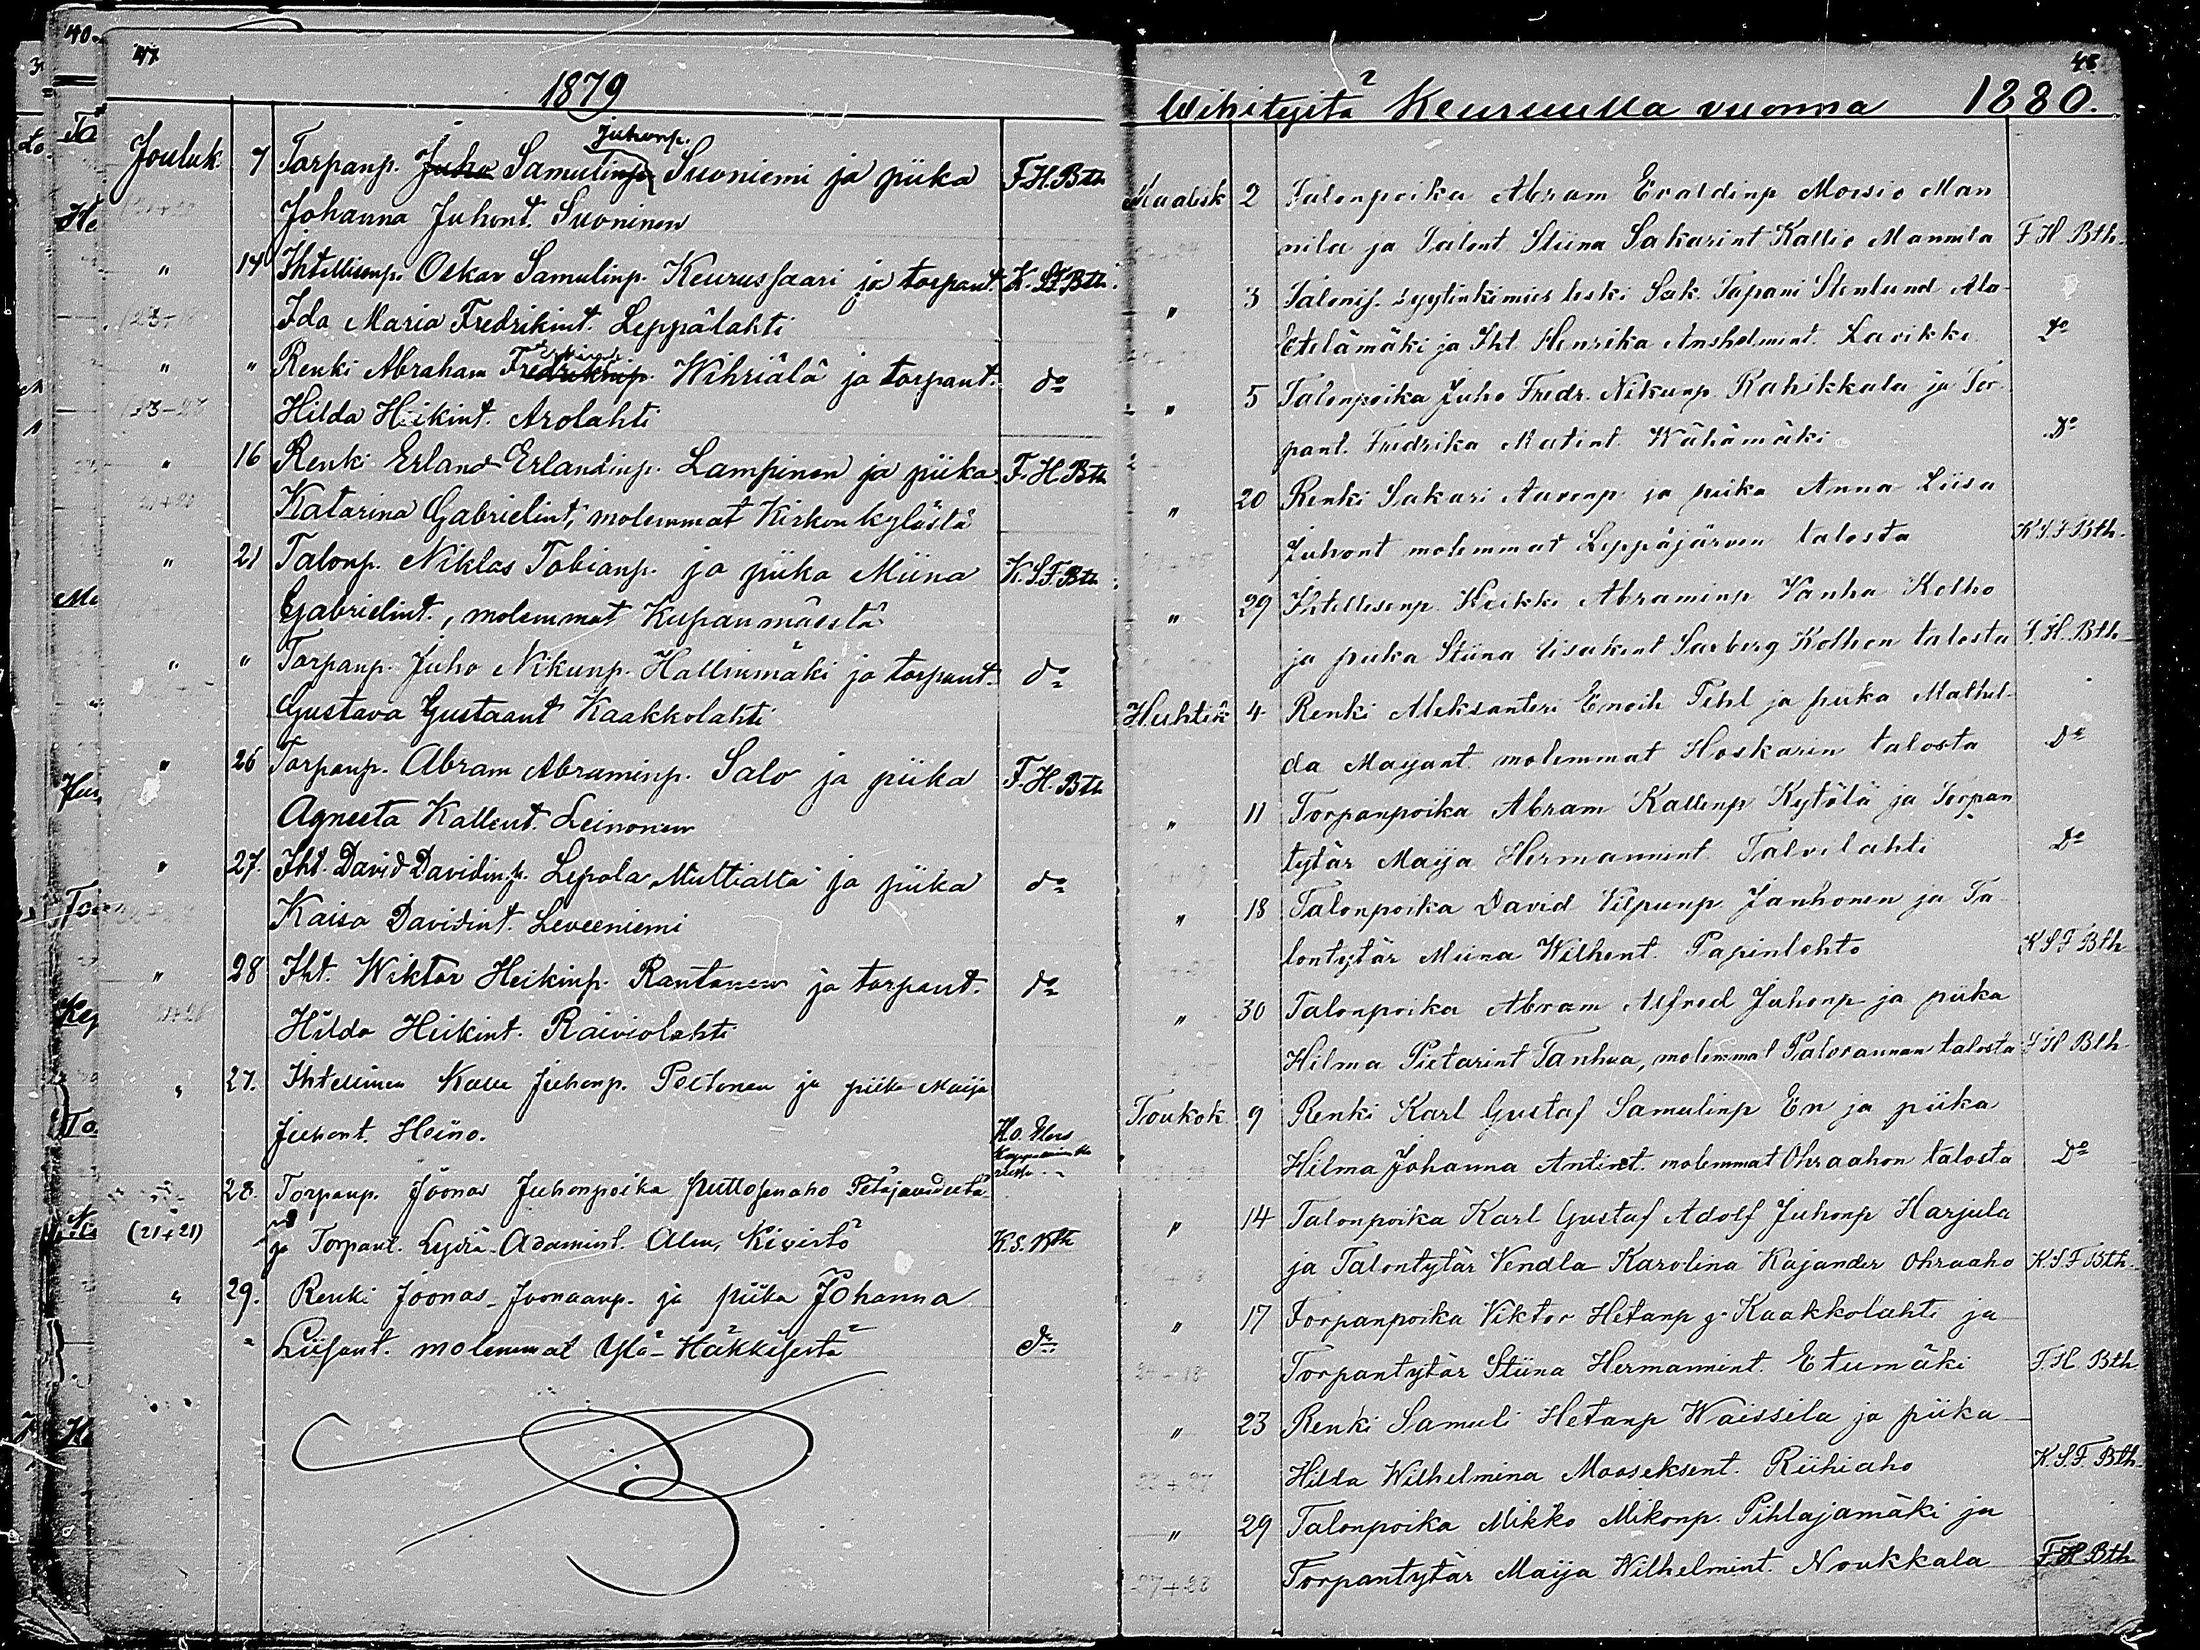 40.
47
1879
Jouluk 7 Torpanp. Juho Samulinp. Juhonp. Suoniemi ja piika F.H.Bth
Johanna Juhont. Suoninen
" 14 Ihtellisenp. Oskar Samulinp. Keurussaari ja torpant. K.S.F.Bth.
Ida Maria Fredrikint. Leppälahti
" " Renki Abraham Fredrikinp. Wihriälä ja torpant. do
Hilda Heikint. Arolahti
" 16 Renki Erland Erlandinp. Lampinen ja piika F.H.Bth
Katarina Gabrielint, molemmat Kirkonkylästä
" 21 Talonp. Niklas Tobianp. ja piika Miina K.S.F.Bth.
Gabrielint., molemmat Kupanmäestä
" " Torpanp. Juho Nikunp. Hallinmäki ja torpant. do
Gustava Gustaant Kaakkolahti
" 26 Torpanp. Abram Abraminp. Salo ja piika F.H.Bth
Agneeta Kallent. Leinonen
" 27. Iht. David Davidinp. Lepola Multialta ja piika do
Kaisa Davidint. Leveeniemi
" 28 Iht. Wiktor Heikinp. Rantanen ja torpant. do
Hilda Heikint. Räiviolahti
" 27. Ihtellinen Kalle Juhonp. Peltonen ja piika Maija
Juhont. Heino.
28. Torpanp. Joonas Juhonpoika Puttosenaho Petäjävedeltä
(21+21) ja Torpant. Lydia Adamint. Alm, Kivistö K.S.Bth
" 29. Renki Joonas Joonaanp. ja piika Johanna
" Liisant. molemmat Ylä-Häkkisestä do
48.
Wihityitä Keuruulla vuonna 1880.
Maalisk 2 Talonpoika Abram Evaldinp Moisio Man
nila ja Talont Stiina Sakarint Kallio Mannila F H Bth.
" 3 Talonis. syytinkimies leski Sak. Tapani Stenlund Ala
Etelämäki ja Iht. Henrika Anshelmint. Lavikko Do
" 5 Talonpoika Juho Fredr. Nikunp. Rahikkala ja Tor
pant. Fredrika Matint Wähämäki Do
" 20 Renki Sakari Aaronp ja piika Anna Liisa
Juhont molemmat Leppäjärven talosta K.S.F.Bth.
" 29 Ihtellisenp. Heikki Abraminp Vanha Kolho
ja piika Stiina Iisakint Saxberg Kolhon talosta F.H.Bth
Huhtik 4 Renki Aleksanteri Enoik Pihl ja piika Mathil
da Maijant. molemmat Hoskarin talosta Do
" 11 Torpanpoika Abram Kallenp Kytölä ja Torpan
tytär Maija Hermannint. Talvilahti Do
" 18 Talonpoika David Vilpunp Janhonen ja Ta
lontytär Miina Wilhont. Papinlohto K S F Bth
" 30 Talonpoika Abram Alfred Juhonp ja piika
Hilma Pietarint Tanhua, molemmat Palorannan talosta F H Bth
Toukok 9 Renki Karl Gustaf Samulinp En ja piika
Hilma Johanna Antint. molemmat Ohraahon talosta Do
" 14 Talonpoika Karl Gustaf Adolf Juhonp Harjula
ja Talontytär Vendla Karolina Kajander Ohraaho K.S.F Bth.
" 17 Torpanpoika Viktor Hetanp Kaakkolahti ja
Torpantytär Stiina Hermannint. Etumäki F.H Bth
" 23 Renki Samuli Hetanp Waissila ja piika
Hilda Wilhelmina Mooseksent. Riihiaho K.S.F. Bth.
" 29 Talonpoika Mikko Mikonp. Pihlajamäki ja
Torpantytär Maija Wilhelmint. Noukkala F.H Bth